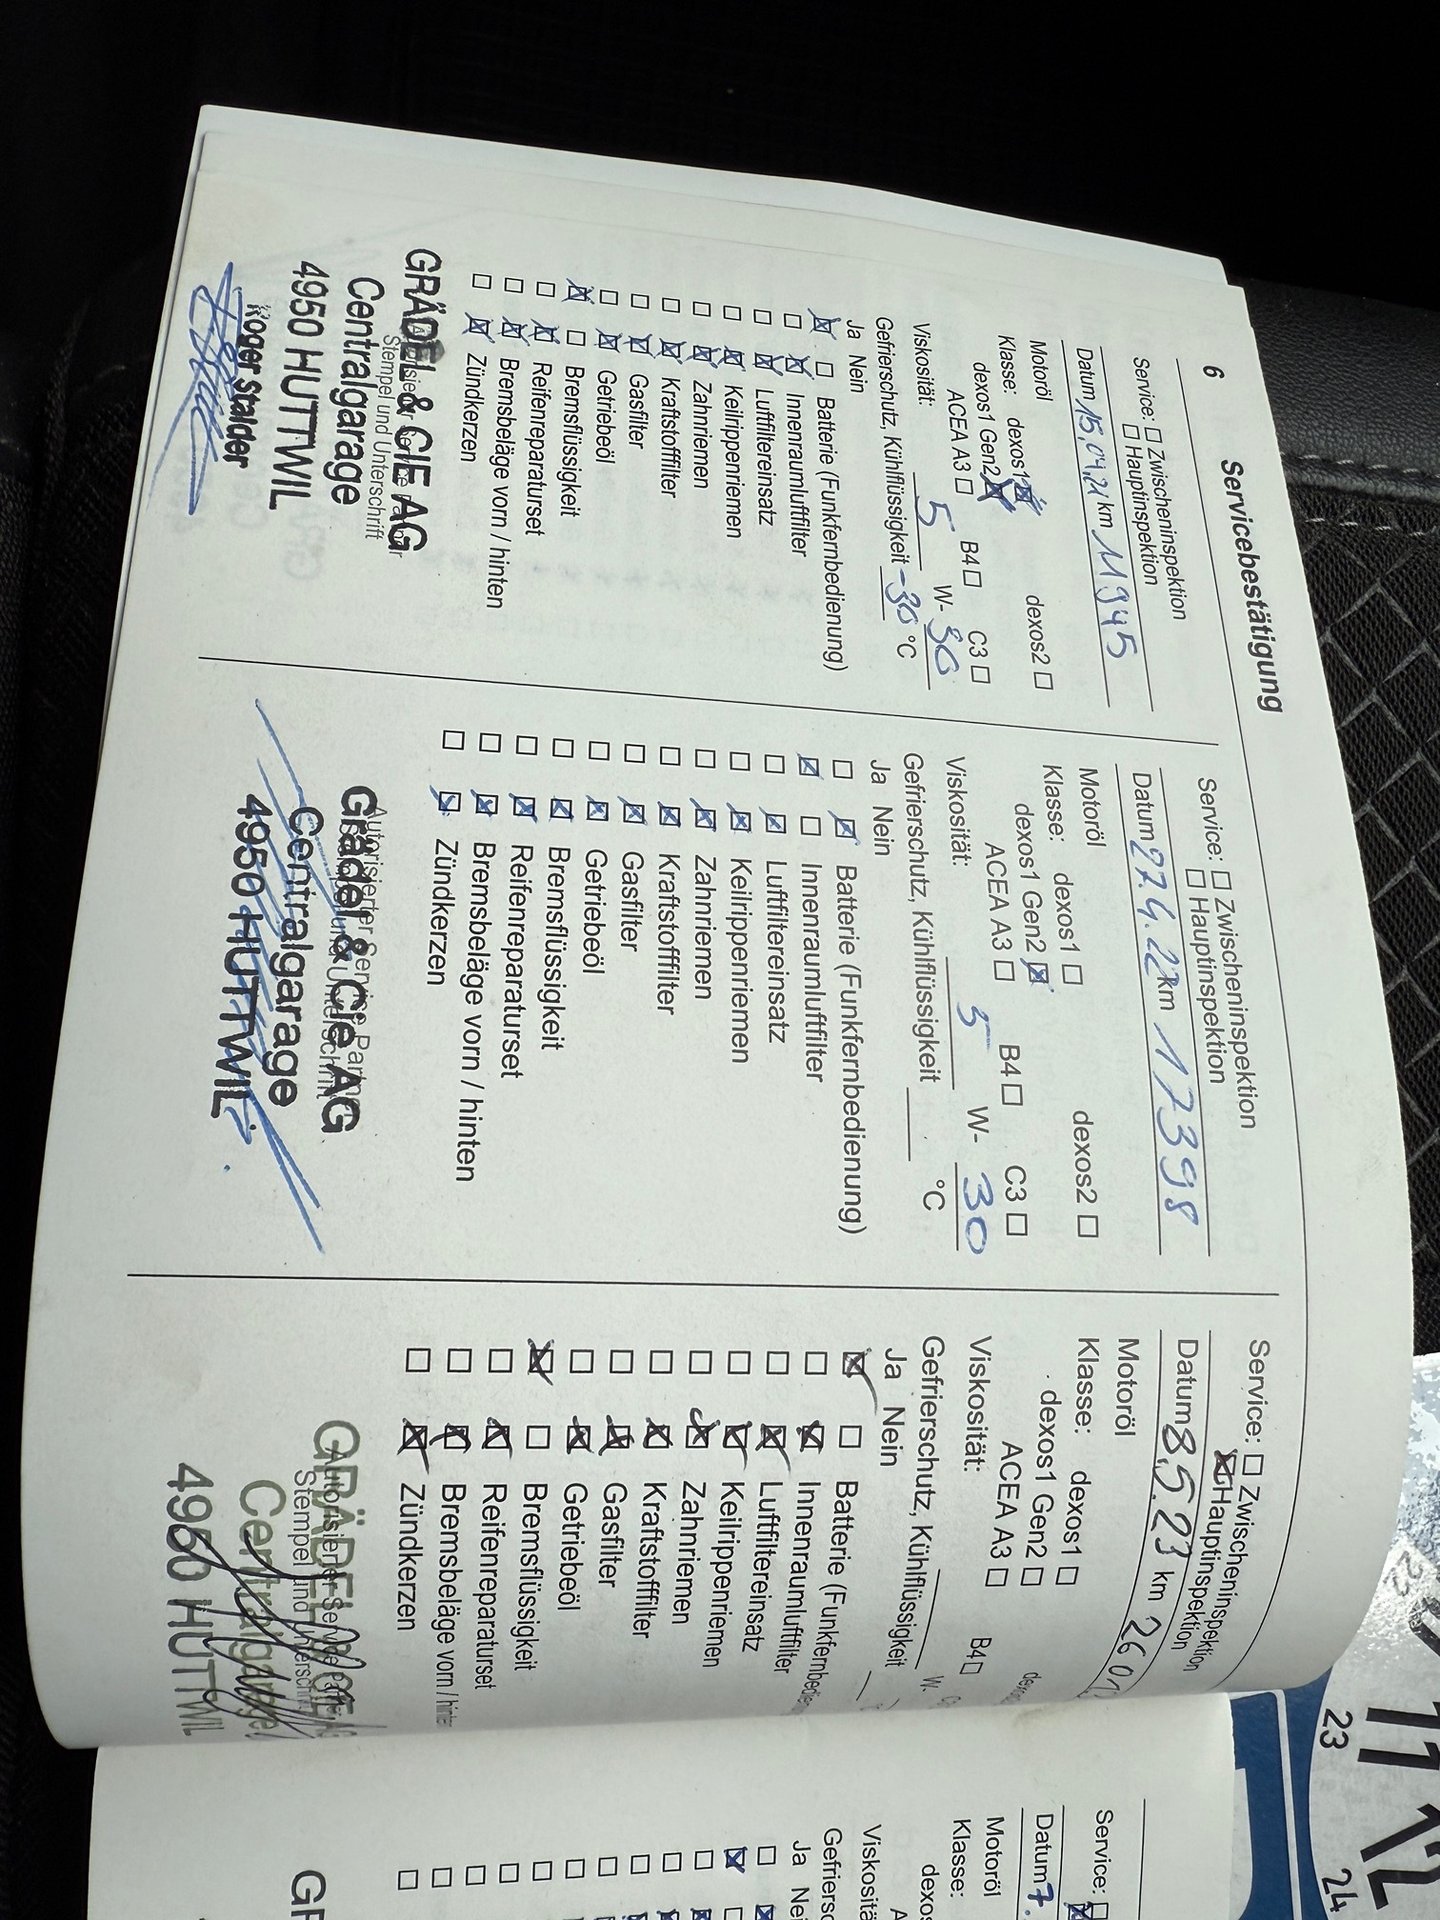 6
Servicebestätigung
Service: ☐ Zwischeninspektion
☐ Hauptinspektion
Datum 15.04.21 km 11945
Motoröl
Klasse: dexos1 ☒ dexos2 ☐
dexos1 Gen2 ☒
ACEA A3 ☐ B4 ☐ C3 ☐
Viskosität: 5 W- 30
Gefrierschutz, Kühlflüssigkeit -30 °C
Ja Nein
☒ ☐ Batterie (Funkfernbedienung)
☐ ☒ Innenraumluftfilter
☐ ☒ Luftfiltereinsatz
☐ ☒ Keilrippenriemen
☐ ☒ Zahnriemen
☐ ☒ Kraftstofffilter
☐ ☒ Gasfilter
☐ ☒ Getriebeöl
☒ ☐ Bremsflüssigkeit
☐ ☒ Reifenreparaturset
☐ ☒ Bremsbeläge vorn / hinten
☐ ☒ Zündkerzen
GRÄDEL & CIE AG
Stempel und Unterschrift
Centralgarage
4950 HUTTWIL
Roger Stalder
Service: ☐ Zwischeninspektion
☐ Hauptinspektion
Datum 27.4.22 km 17398
Motoröl
Klasse: dexos1 ☐ dexos2 ☐
dexos1 Gen2 ☒
ACEA A3 ☐ B4 ☐ C3 ☐
Viskosität: 5 W- 30
Gefrierschutz, Kühlflüssigkeit °C
Ja Nein
☐ ☒ Batterie (Funkfernbedienung)
☒ ☐ Innenraumluftfilter
☐ ☒ Luftfiltereinsatz
☐ ☒ Keilrippenriemen
☐ ☒ Zahnriemen
☐ ☒ Kraftstofffilter
☐ ☒ Gasfilter
☐ ☒ Getriebeöl
☐ ☒ Bremsflüssigkeit
☐ ☒ Reifenreparaturset
☐ ☒ Bremsbeläge vorn / hinten
☐ ☒ Zündkerzen
Autorisierter Service Partner
Grädel & Cie AG
Centralgarage
4950 HUTTWIL
Service: ☐ Zwischeninspektion
☒ Hauptinspektion
Datum 8.5.23 km 2601
Motoröl
Klasse: dexos1 ☐
dexos1 Gen2 ☐
ACEA A3 ☐ B4 ☐
Viskosität: W-
Gefrierschutz, Kühlflüssigkeit
Ja Nein
☒ ☐ Batterie (Funkfernbedie
☐ ☒ Innenraumluftfilter
☐ ☒ Luftfiltereinsatz
☐ ☒ Keilrippenriemen
☐ ☒ Zahnriemen
☐ ☒ Kraftstofffilter
☐ ☒ Gasfilter
☐ ☒ Getriebeöl
☒ ☐ Bremsflüssigkeit
☐ ☒ Reifenreparaturset
☐ ☒ Bremsbeläge vorn / hinte
☐ ☒ Zündkerzen
GRÄDEL & CIE AG
Autorisierter Service Partner
Stempel und Unterschrift
Centralgarage
4950 HUTTWIL
Service: ☒
Datum 7.
Motoröl
Klasse:
dexos
A
Viskositä
Gefriersc
Ja Nei
GR
11 12
23 24